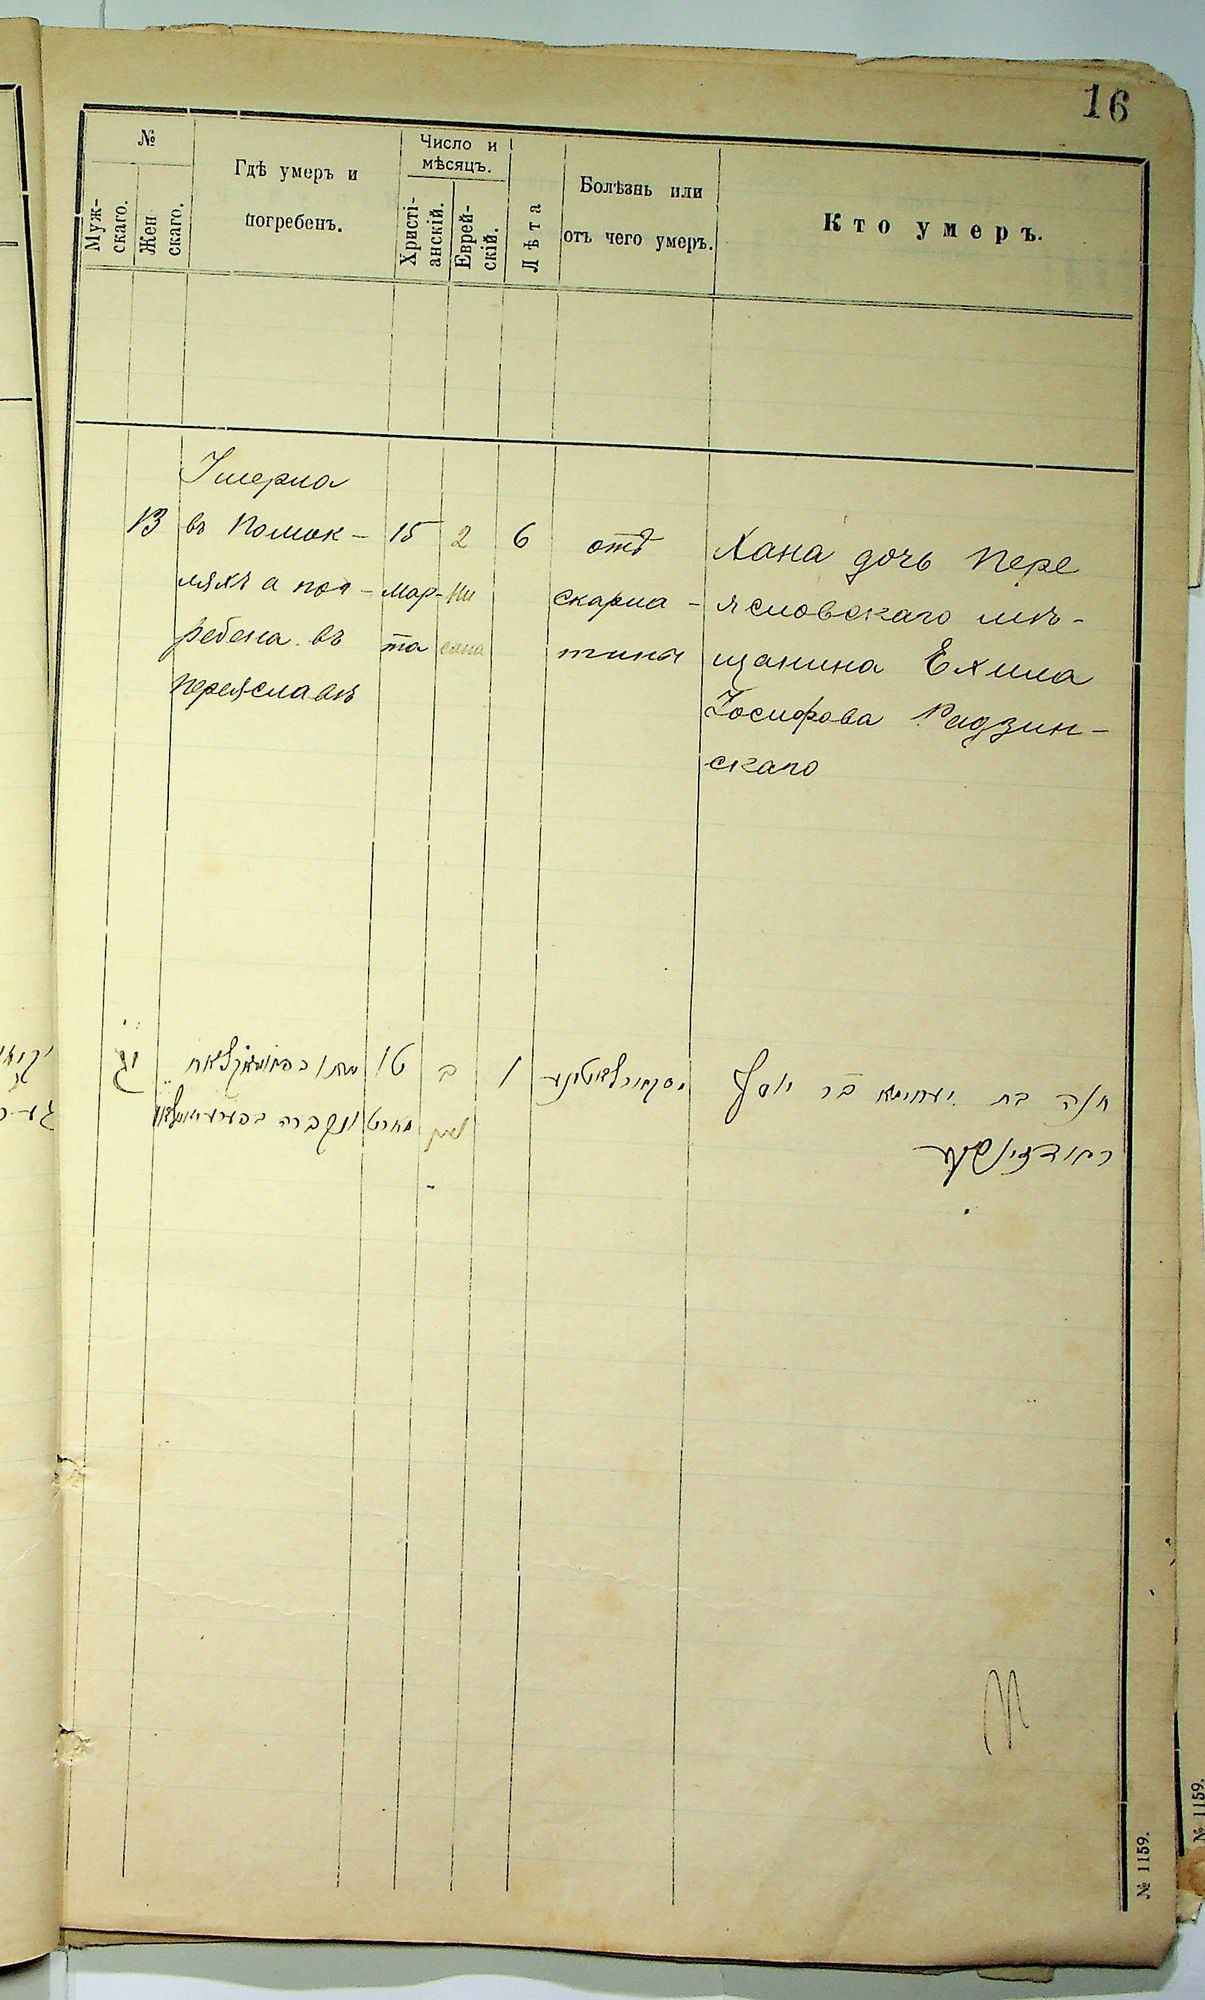 16
№
Муж-
скаго.
Жен
скаго.
Гдѣ умеръ и
погребенъ.
Число и
мѣсяцъ.
Христі-
анскій.
Еврей-
скій.
Лѣта
Болѣзнь или
отъ чего умеръ.
Кто умеръ.
13
Умерла
въ Помок-
ляхъ а пог-
ребена въ
Переяславѣ
15
мар-
та
2
Ни
сана
6
отъ
скарла-
тины
Хана дочь Пере
яславскаго мѣ-
щанина Ехила
Іосифова Радзин-
скаго
יג
טו
מארט
ונקברה
ב
ניסן
חנה בת יחיאל בר יוסף
ראדזינסקי
№ 1159.
№ 1159.